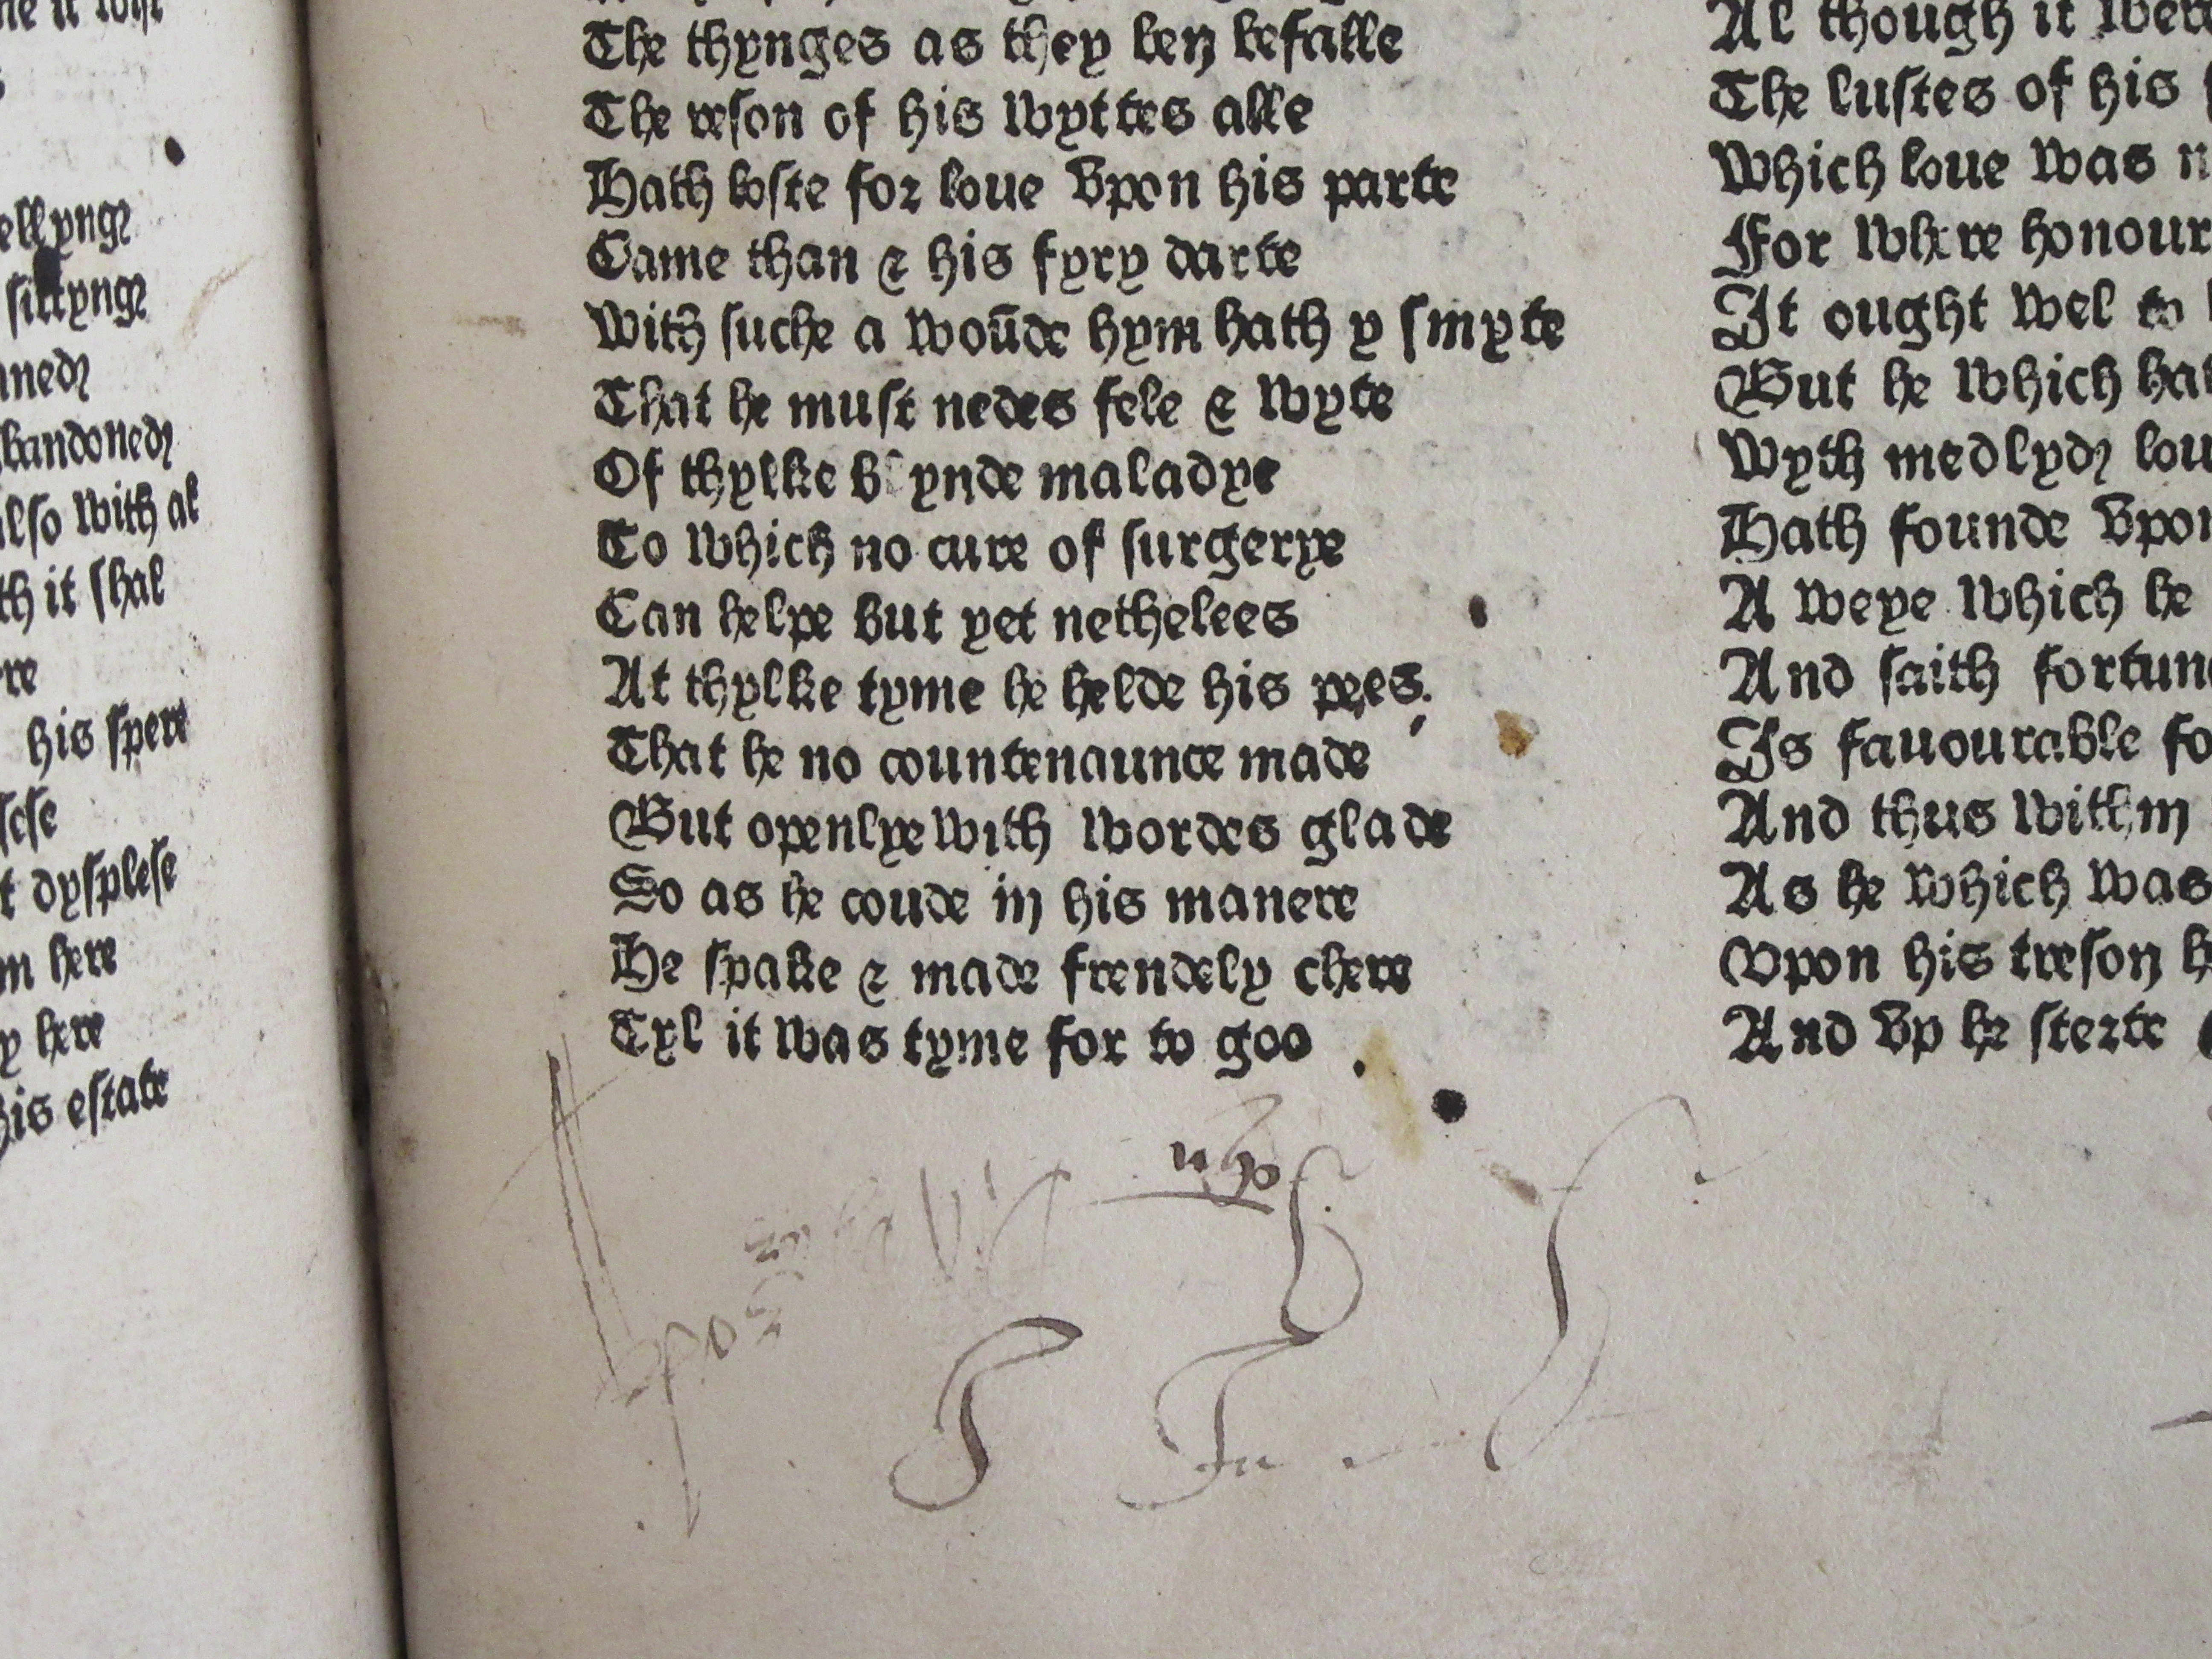 ellyng
sittyng
nned
bandoned
also with al
th it shal
re
his spere
sese
t dysplese
m here
y here
his estate
The thynges as they ben befalle
The reson of his wyttes alle
Hath loste for loue vpon his parte
Came than & his fyry darte
With suche a woūde hym hath y smyte
That he must nedes fele & wyte
Of thylke blynde maladye
To which no cure of surgerye
Can helpe but yet nethelees
At thylke tyme he helde his pees.
That he no countenaunce made
But openlye with wordes glade
So as he coude in his manere
He spake & made frendely chere
Tyl it was tyme for to goo
Al though it were
The lustes of his
Which loue was n
For where honour
It ought wel to
But he which hat
Wyth medlyd lou
Hath founde vpon
A weye which he
And saith fortun
Is fauourable fo
And thus within
As he which was
Vpon his treson h
And vp he sterte